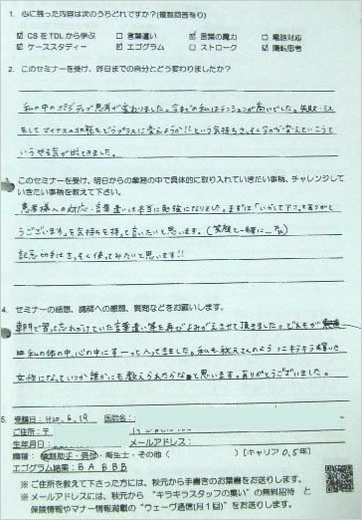 1. 心に残った内容は次のうちどれですか?(複数回答有り)
☑ CSをTDLから学ぶ □ 言葉遣い ☑ 言葉の魔力 □ 電話対応
☑ ケーススタディー ☑ エゴグラム □ ストローク ☑ 陽転思考
2. このセミナーを受け、昨日までの自分とどう変わりましたか?
私の中のポジティブ思考が変わりました。今までの私はテンションが高いでした。失敗・ミス
をしてマイナスの状態をどうプラスに変えようか!?という気持ち
いうやる気が出てきました。
3. このセミナーを受け、明日からの業務の中で具体的に取り入れていきたい事柄、チャレンジして
いきたい事柄を教えて下さい。
患者様への対応・言葉遣いは本当に勉強になりました。まずは「いらして下さってありがと
うございます。」を気持ちを持って言いたいと思います。(笑顔と一緒に
記念切手はさっそく使ってみたいと思います!!
4. セミナーの感想、講師への感想、質問などをお願いします。
専門で習って忘れかけていた言葉遣い等を再びよみがえさせて頂きました。
私の体の中、心の中にすーっと入ってきました。私も秋元さんのようにキラキラ輝いた
女性になっていつか誰かにも教えられたらな~と思います。ありがとうございました。
5. 受講日:H20.6.19 医院名:
ご住所:〒
生年月日: メールアドレス:
職種:診療助手・受付・衛生士・その他( )【キャリア0.5年】
エゴグラム結果:BABBB
※ご住所を教えて下さった方には、秋元から手書きのお葉書をお送りします。
※メールアドレスには、秋元から “キラキラスタッフの集い” の無料招待 と
保険情報やマナー情報満載の “ウェーヴ通信(月1回)をお送りします。